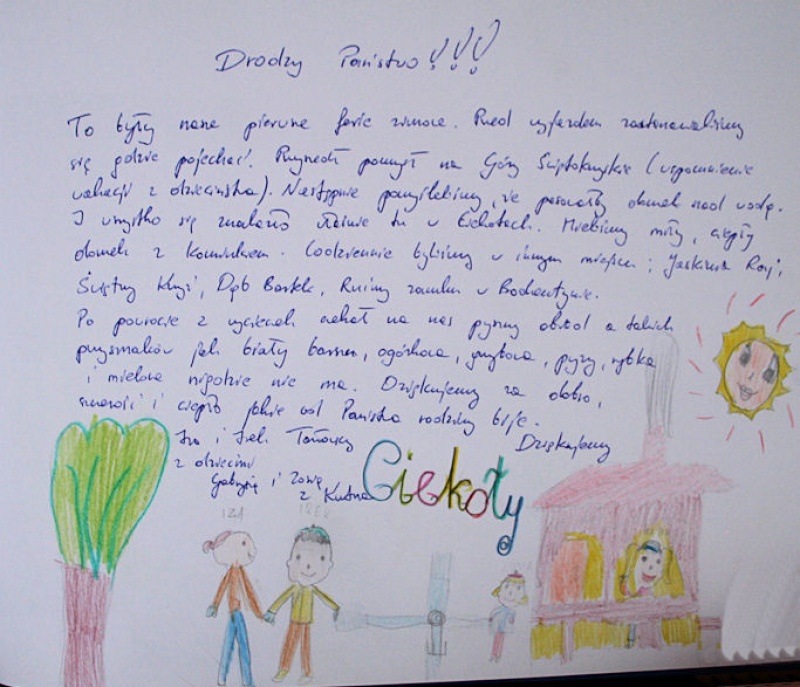 Drodzy Państwo!!!
To były nasze pierwsze ferie zimowe. Przed wyjazdem zastanawialiśmy
się gdzie pojechać. Przyszedł pomysł na Góry Świętokrzyskie (wspomnienie
wakacji z dzieciństwa). Następnie pomyśleliśmy, że domek nad wodą.
I wszystko się znalazło właśnie tu w Ciekotach. Mieliśmy miły, ciepły
domek z kominkiem. Codziennie byliśmy w innym miejscu; Jaskinia Raj,
Święty Krzyż, Dąb Bartek, Ruiny zamku w Bodzentynie.
Po powrocie z wycieczek czekał na nas pyszny obiad a takich
przysmaków jak biały barszcz, ogórkowa, grzybowa, pyzy, rybka
i mielone nigdzie nie ma. Dziękujemy za dobro,
i ciepło jakie od Państwa rodziny bije.
Dziękujemy
Iza i
z dziećmi
Gabrysią i Zosią
z Kutna
Ciekoty
IZA